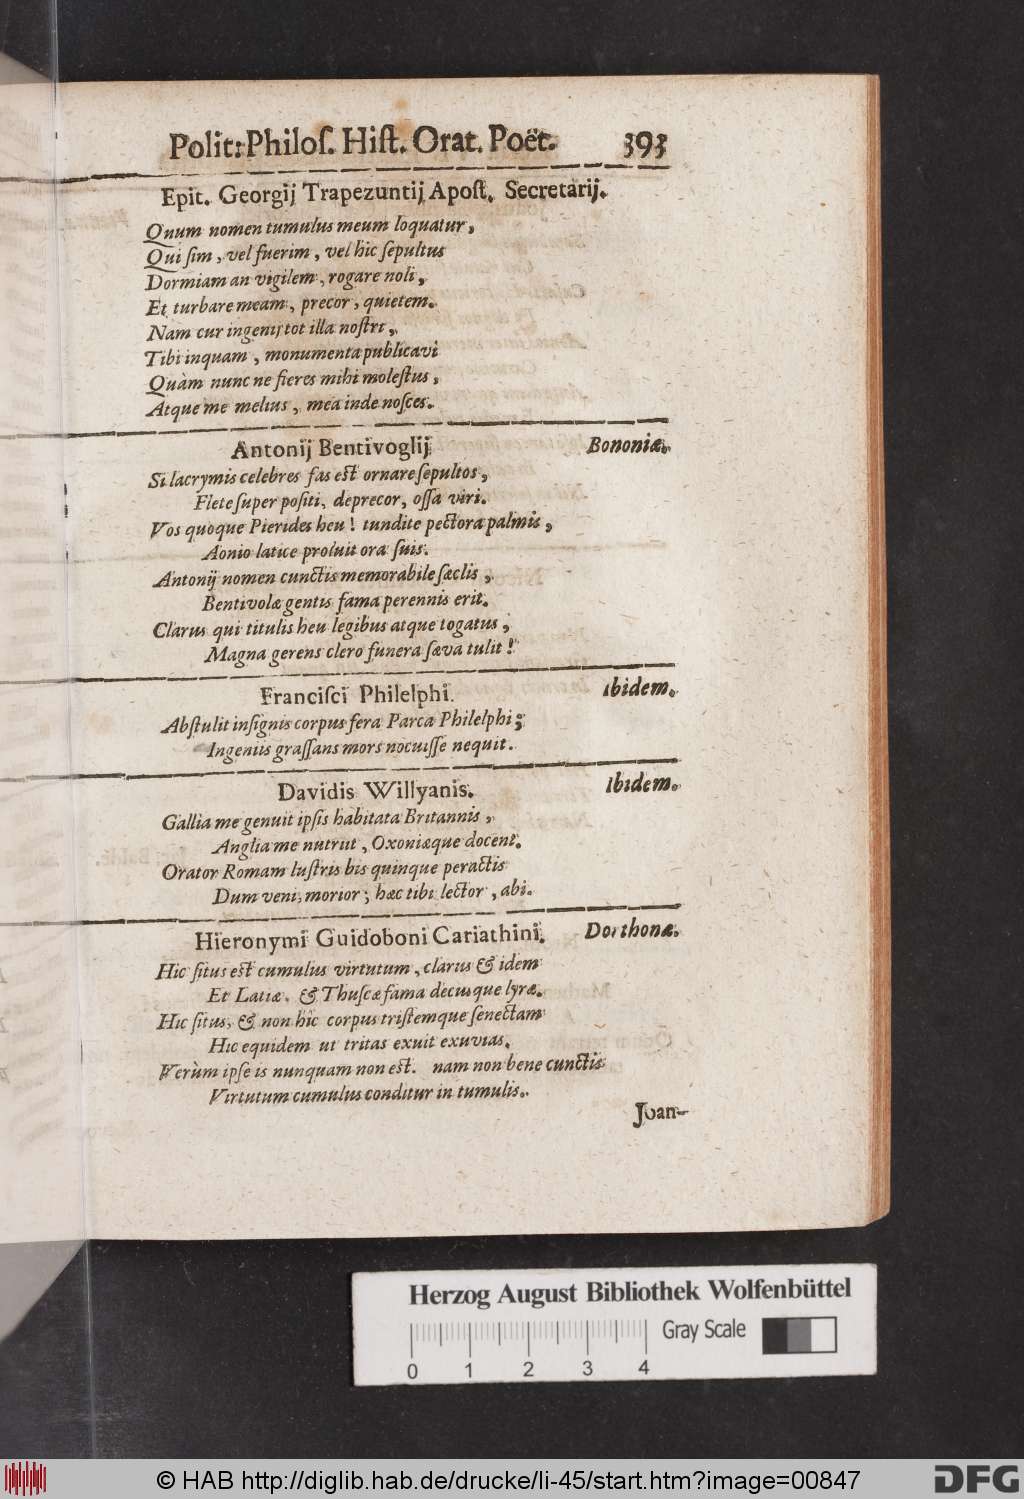 Polit: Philoſ. Hiſt. Orat. Poët. 393
Epit. Georgij Trapezuntij Apoſt. Secretarij.
Quum nomen tumulus meum loquatur,
Qui ſim, vel fuerim, vel hic ſepultus
Dormiam an vigilem, rogare noli,
Et turbare meam, precor, quietem.
Nam cur ingenij tot illa noſtri,
Tibi inquam, monumenta publicavi
Quàm nunc ne fieres mihi moleſtus,
Atque me melius, mea inde noſces.
Antonij Bentivoglij Bononiæ.
Si lacrymis celebres fas eſt ornare ſepultos,
Flete ſuper poſiti, deprecor, oſſa viri.
Vos quoque Pierides heu! tundite pectora palmis,
Aonio latice proluit ora ſuis.
Antonij nomen cunctis memorabile ſæclis,
Bentivolæ gentis fama perennis erit.
Clarus qui titulis heu legibus atque togatus,
Magna gerens clero funera ſæva tulit!
Franciſci Philelphi. Ibidem.
Abſtulit inſignis corpus fera Parca Philelphi;
Ingeniis graſſans mors nocuiſſe nequit.
Davidis Willyanis. Ibidem.
Gallia me genuit ipſis habitata Britannis,
Anglia me nutriit, Oxoniæque docent.
Orator Romam luſtris bis quinque peractis
Dum veni, morior; hæc tibi lector, abi.
Hieronymi Guidoboni Cariathini. Dorthonæ.
Hic ſitus eſt cumulus virtutum, clarus & idem
Et Latiæ, & Thuſcæ fama decuſque lyræ.
Hic ſitus, & non hîc corpus triſtemque ſenectam
Hic equidem ut tritas exuit exuvias.
Verùm ipſe is nunquam non eſt. nam non bene cunctis
Virtutum cumulus conditur in tumulis.
Joan-
Herzog August Bibliothek Wolfenbüttel
Gray Scale
0 1 2 3 4
© HAB http://diglib.hab.de/drucke/li-45/start.htm?image=00847
DFG